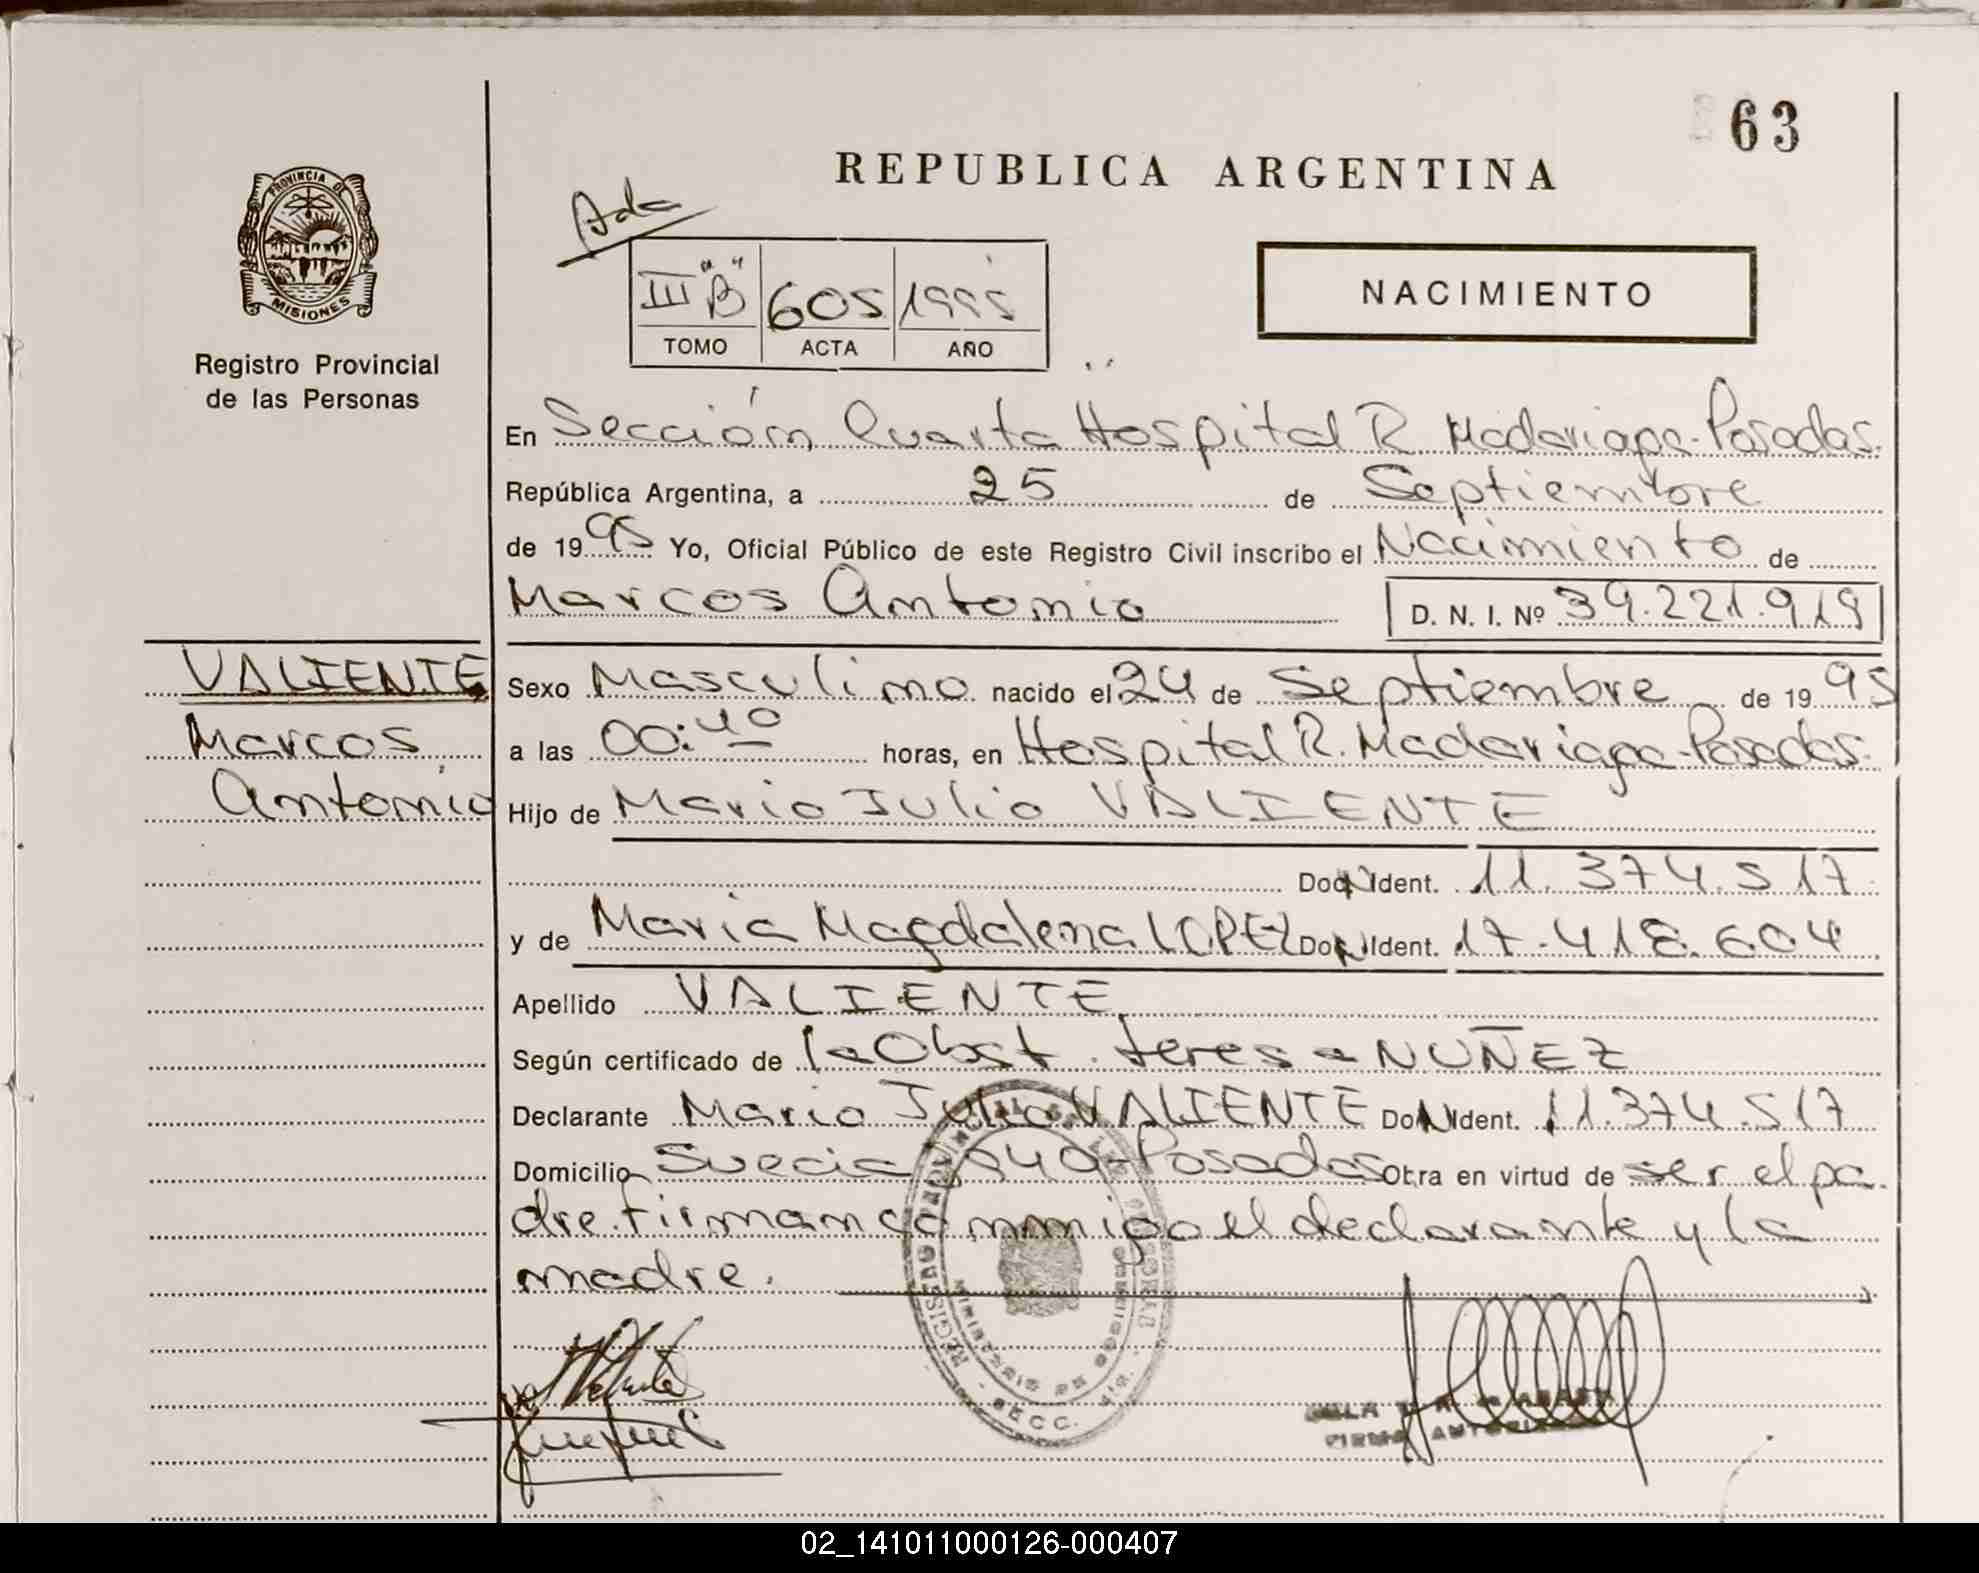 63
REPUBLICA ARGENTINA
PROVINCIA DE
MISIONES
Registro Provincial
de las Personas
Ada
III "B" 605 1995
TOMO ACTA AÑO
NACIMIENTO
En Sección Cuarta Hospital R. Madariaga-Posadas.
República Argentina, a 25 de Septiembre
de 1995 Yo, Oficial Público de este Registro Civil inscribo el Nacimiento de
Marcos Antonio D. N. I. Nº 39.221.919
VALIENTE
Marcos
Antonio
Sexo Masculino nacido el 24 de Septiembre de 1995
a las 00:40 horas, en Hospital R. Madariaga-Posadas.
Hijo de Mario Julio VALIENTE
Doc. Ident. 11.374.517
y de Maria Magdalena LOPEZ Doc. Ident. 17.418.604
Apellido VALIENTE
Según certificado de la Obst. teresa NUÑEZ
Declarante Mario Julio VALIENTE Doc. Ident. 11.374.517
Domicilio Suecia Posadas Obra en virtud de ser el pa-
dre. firman conmigo el declarante y la
madre.
SECC. 4ta.
02_141011000126-000407